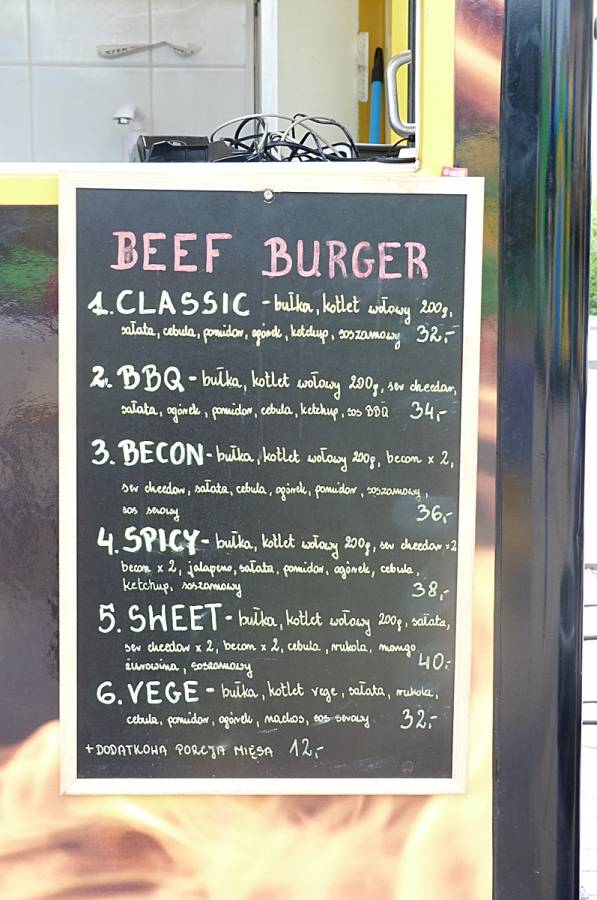 BEEF BURGER
1. CLASSIC - bułka, kotlet wołowy 200g,
sałata, cebula, pomidor, ogórek, ketchup, sos szamowy 32,-
2. BBQ - bułka, kotlet wołowy 200g, ser chedar,
sałata, ogórek, pomidor, cebula, ketchup, sos BBQ 34,-
3. BECON - bułka, kotlet wołowy 200g, becon x 2,
ser chedar, sałata, cebula, ogórek, pomidor, sos szamowy,
sos serowy 36,-
4. SPICY - bułka, kotlet wołowy 200g, ser chedar x2
becon x 2, jalapeno, sałata, pomidor, ogórek, cebula,
ketchup, sos szamowy 38,-
5. SHEET - bułka, kotlet wołowy 200g, sałata,
ser chedar x 2, becon x 2, cebula, rukola, mango
żurawina, sos szamowy 40.-
6. VEGE - bułka, kotlet vege, sałata, rukola,
cebula, pomidor, ogórek, nachos, sos serowy 32,-
+ DODATKOWA PORCJA MIĘSA 12,-